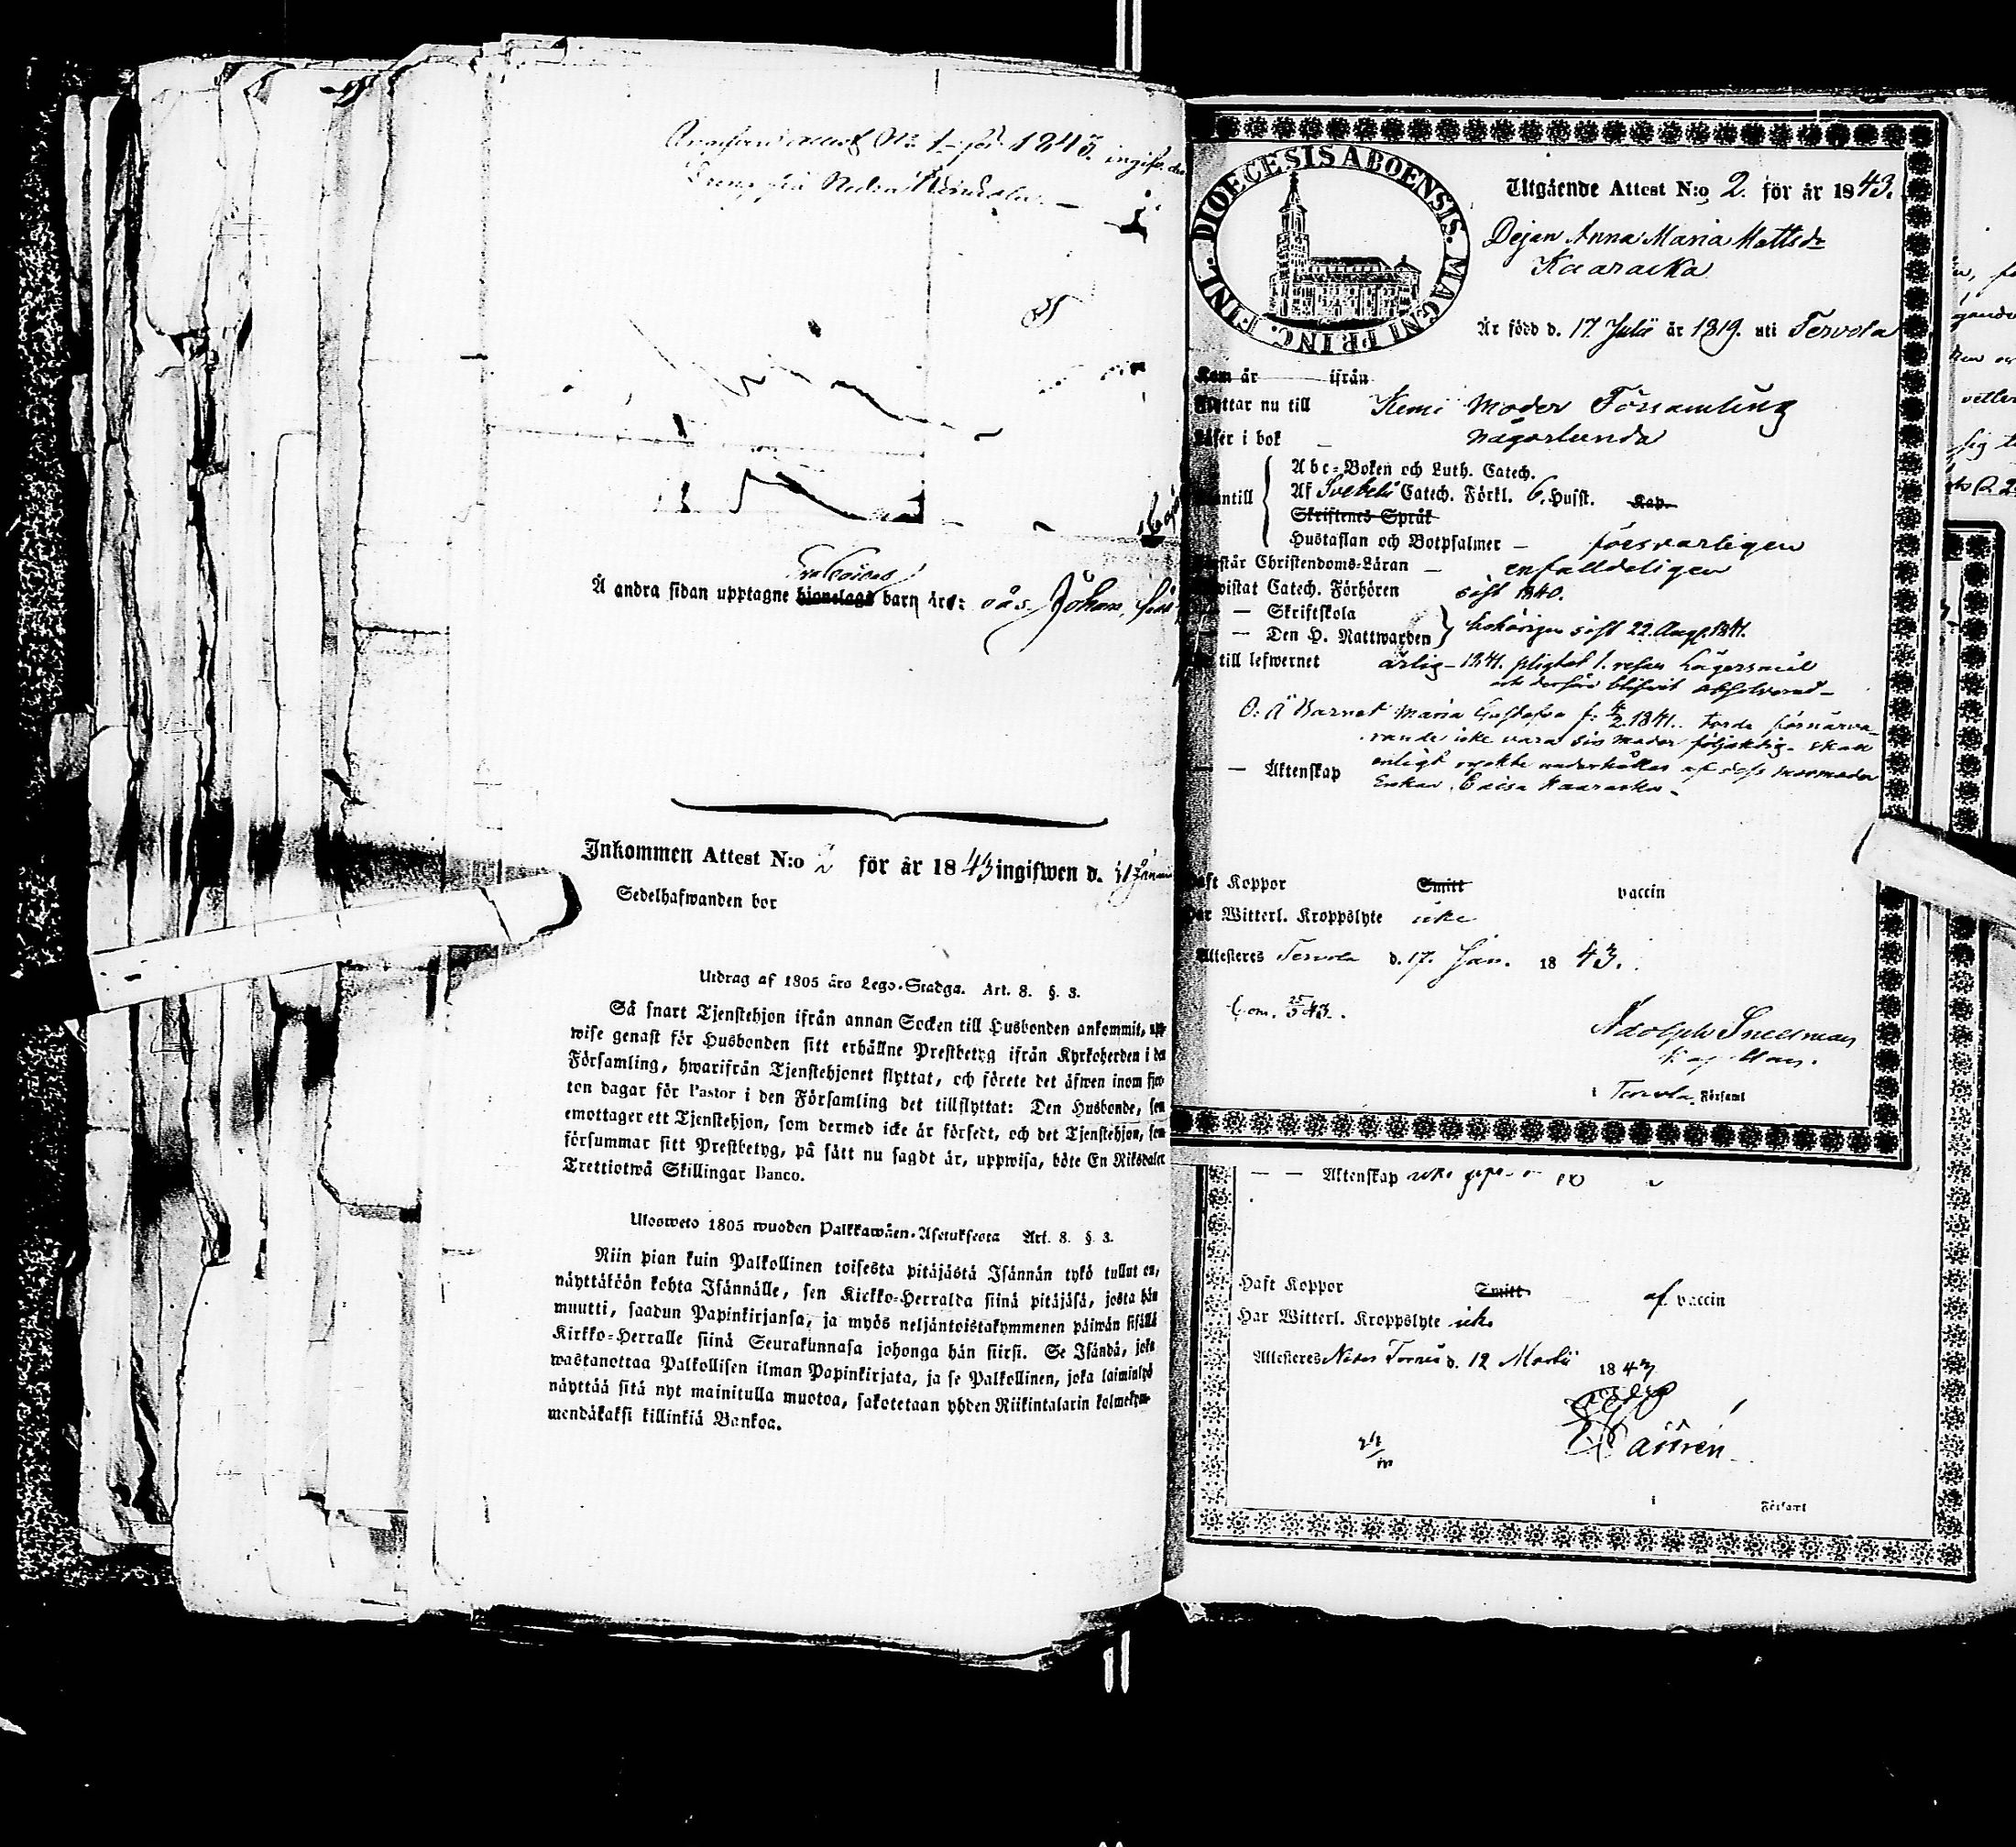 1843. ingifw.
Å andra sidan upptagne hionelags barn äro: oäs. Johan,
Inkommen Attest N:o 2 för år 1843 ingifwen d.
Sedelhafwanden bor
Utdrag af 1805 års Lego-Stadga. Art. 8. §. 3.
Så snart Tjenstehjon ifrån annan Socken till Husbonden ankommit, upp-
wise genast för Husbonden sitt erhållne Prestbetyg ifrån Kyrkoherden i den
Församling, hwarifrån Tjenstehjonet flyttat, och förete det äfwen inom fjor-
ton dagar för Pastor i den Församling det tillflyttat: Den Husbonde, som
emottager ett Tjenstehjon, som dermed icke är försedt, och det Tjenstehjon, som
försummar sitt Prestbetyg, på sätt nu sagdt är, uppwisa, böte En Riksdaler
Trettiotwå Skillingar Banco.
Ulosweto 1805 wuoden Palkkawäen-Asetuksesta Art. 8. §. 3.
Niin pian kuin Palkollinen toisesta pitäjästä Isännän tykö tullut on,
näyttäköön kohta Isännälle, sen Kirkko-Herralda siinä pitäjäsä, josta hän
muutti, saadun Papinkirjansa, ja myös neljäntoistakymmenen päiwän sisällä
Kirkko-Herralle siinä Seurakunnasa johonga hän siirsi. Se Isändä, joka
wastanottaa Palkollisen ilman Papinkirjata, ja se Palkollinen, joka laiminlyö
näyttää sitä nyt mainitulla muotoa, sakotetaan yhden Riikintalarin kolmekym-
mendäkaksi killinkiä Bankoa.
DIOECESIS ABOENSIS. MAGNI PRINC. FINL.
Utgående Attest N:o 2. för år 1843.
Dejan Anna Maria Mattsdr
Kaaracka
Är född d. 17 Julii år 1819. uti Tervola
Kom år ifrån
Flyttar nu till Kemi Moder Församling
Läser i bok någorlunda
Abc-Boken och Luth. Catech.
Utantill Af Svebelii Catech. Förkl. 6. Husst. Kap.
Skriftenes Språk
Hustaflan och Botpsalmer — försvarligen
Förstår Christendoms-Läran — enfalldeligen
Bewistat Catech. Förhören sist 1840.
— — Skriftskola
— — Den H. Nattwarden behörigen sist 22. Aug. 1841.
till lefwernet ärlig — 1841. pligtat 1. resan Lägersmål
och derföre blifvit absolverad —
O: Ä Barnet Maria Gustafva f: 4/2 1841. torde förnärva-
rande icke vara sin moder följaktig. skall
enligt underhålles af dess mormoder
— — Äktenskap Enkan Caisa Kaaracka —
Haft Koppor Smitt vaccin
Har Witterl. Kroppslyte icke
Attesteres Tervola d. 17. Jan. 1843.
Adolph Snellman
Kapellan.
i Tervola Församl
— — Äktenskap icke
Haft Koppor Smitt af vaccin
Har Witterl. Kroppslyte icke
Attesteres Neder Torneå d. 12 Martii 1843
Castrén
i Församl